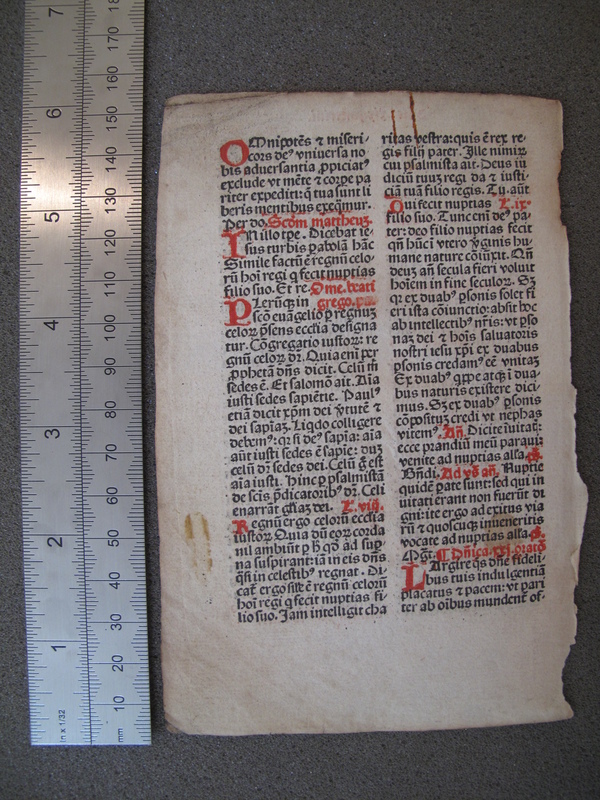 OMnipotēs & miseri-
cors deꝰ vniuersa no
bis aduersantia ꝓpiciatꝰ
exclude vt mēte & corpe pa
riter expediti: q̄ tua sunt li
beris mentibus exeq̄mur.
Per do. Scd̄m mattheuꝫ.
IN illo tꝑe. Dicebat ie-
sus turbis pabolā hāc
Simile factū ē regnū celo-
rū hoī regi q fecit nuptias
filio suo. Et re. Ome. beati
PLerūqꝫ in grego. pa.
scō euāgelio ꝑ regnuꝫ
celoꝝ p̄sens ecclīa designa
tur. Cōgregatio iustoꝝ: re
gnū celoꝝ dr̄. Quia enī per
ꝓphetā dn̄s dicit. Celū m̄
sedes ē. Et salomō ait. Aīa
iusti sedes sapiētie. Paulꝰ
etiā dicit xp̄m dei v̄tutē &
dei sapiaꝫ. Liqdo colligere
debemꝰ: ꝙ si deꝰ sapīa: aīa
aūt iusti sedes ē sapīe: duꝫ
celū dr̄ sedes dei. Celū g̊ est
aīa iusti. Hinc ꝑ psalmistā
de scīs p̄dicatoribꝰ dr̄. Celi
enarrāt gl̄iaꝫ dei. L. viij.
Regnū ergo celorū ecclīa
iustoꝝ. Quia dū eoꝝ corda
nil ambiūt ꝑ h̄ qd̄ ad sup̄
na suspirant: iā in eis dn̄s
q̄si in celestibꝰ regnat. Di-
cat̄ ergo s̄ile ē regnū celorū
hoī regi q fecit nuptias fi-
lio suo. Jam intelligit cha
ritas vestra: quis ē rex re-
gis filij pater. Jlle nimiꝝ
cui psalmista ait. Deus iu
diciū tuuꝫ regi da & iusti-
ciā tuā filio regis. Tu. aūt
Qui fecit nuptias L. ix.
filio suo. Tunc enī deꝰ pa-
ter: deo filio nuptias fecit
qn̄ hūc ī vtero v̄ginis hu-
mane nature cōiūxit. Qn̄
deuꝫ an̄ secula fieri voluit
hoīem in fine seculoꝝ. Sꝫ
qꝛ ex duabꝰ ꝑsonis solet fi
eri ista cōiunctio: absit hoc
ab intellectibꝰ nr̄is: vt ꝑso
naꝫ dei & hoīs saluatoris
nostri iesu xp̄i ex duabus
ꝑsonis credamꝰ eē vnitaꝫ
Ex duabꝰ qꝑpe atqꝫ ī dua-
bus naturis existere dici-
mus. Sꝫ ex duabꝰ ꝑsonis
cōpositus credi vt nephas
vitemꝰ. Añ. Dicite īuitat̄:
ecce prandiū meū paraui:
venite ad nuptias all̄a. ps.
Bn̄di. Ad vs̄ añ. Nuptie
quidē pate sunt: sed qui in
uitati erant non fuerūt di
gni: ite ergo ad exitus via
rū & quoscūqꝫ inueneritis
vocate ad nuptias all̄a. ps.
Mgt̄. ¶ Dn̄ica. xxj. oratō
LArgire q̄s dn̄e fideli-
bus tuis indulgentiā
placatus & pacem: vt pari
ter ab oībus mundent̄ of-
7
6
5
4
3
2
1
In x 1/32
180
170
160
150
140
130
120
110
100
90
80
70
60
50
40
30
20
10
mm